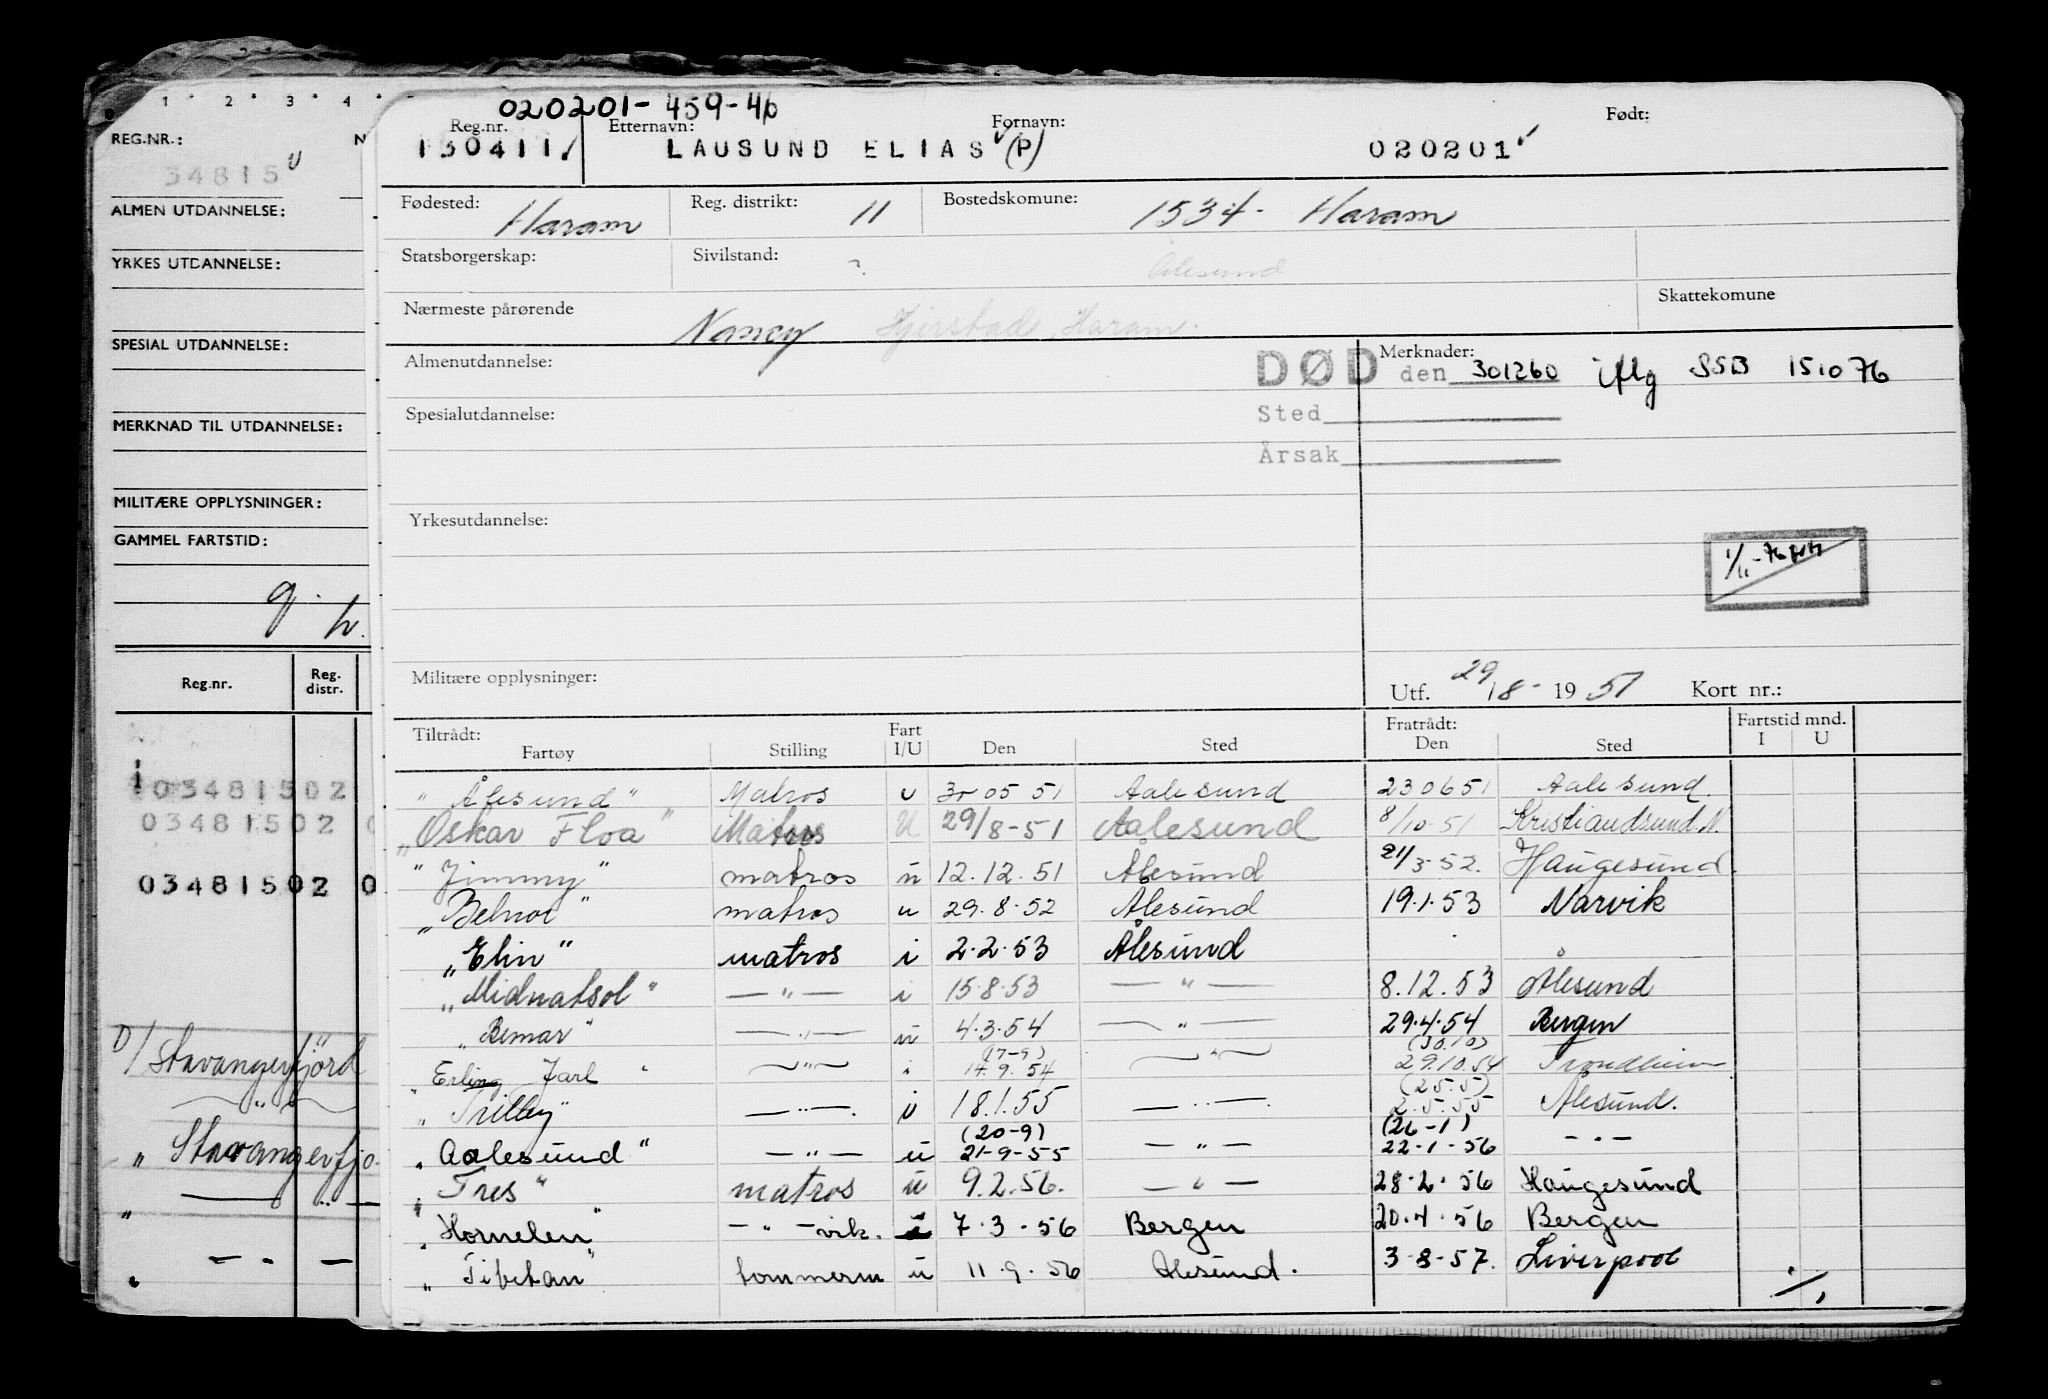 1 · 2 · 3 · 4 ·
REG.NR.: N
34815
ALMEN UTDANNELSE:
YRKES UTDANNELSE:
SPESIAL UTDANNELSE:
MERKNAD TIL UTDANNELSE:
MILITÆRE OPPLYSNINGER:
GAMMEL FARTSTID:
g. h.
Reg.nr. Reg. distr.
103481502
03481502 0
03481502 0
D/ Stavangerfjord
— " —
" Stavangerfjo
" — " —
" — " —
020201-459-46
Reg.nr. Etternavn: Fornavn: Født:
130411 LAUSUND ELIAS (P) 020201
Fødested: Haram Reg. distrikt: 11 Bostedskomune: 1534 - Haram
Statsborgerskap: Sivilstand: ? Ålesund
Nærmeste pårørende Nancy Hjerstad, Haram. Skattekomune
Almenutdannelse: DØD Merknader: den 301260 iflg SSB 151076
Spesialutdannelse: Sted
Årsak
Yrkesutdannelse:
1/11-76
Militære opplysninger: Utf. 29/8 - 1951 Kort nr.:
Tiltrådt: Fart Fratrådt: Fartstid mnd.
Fartøy Stilling I/U Den Sted Den Sted I U
"Ålesund" Matros u 30 05 51 Aalesund 230651 Aalesund.
"Oskar Floa" Matros U 29/8-51 Aalesund 8/10-51 Kristiandsund.N.
"Jimmy" matros u 12.12.51 Ålesund 21/3-52. Haugesund.
"Belnor" matros u 29.8.52 Ålesund 19.1.53 Narvik
"Elin" matros i 2.2.53 Ålesund
"Midnatsol" — " — i 15.8.53 — " — 8.12.53 Ålesund
"Bemar" — " — u 4.3.54 — " — 29.4.54 Bergen
(17-9) (30.10)
"Erling Jarl" — " — i 14.9.54 — " — 29.10.54 Trondheim
(25.5)
"Trilley" — " —. i 18.1.55 — " —. 2.5.55 Ålesund.
(20-9) (26-1)
"Aalesund" — " — u 21-9-55 — " — 22-1-56 — " —
"Tres" matros u 9.2.56. — " — 28.2.56 Haugesund
"Hornelen" — " — vik. i 7.3.56 Bergen 20.4.56 Bergen
"Tibetan" tømmerm u 11.9.56 Ålesund. 3-8-57. Liverpool ./,